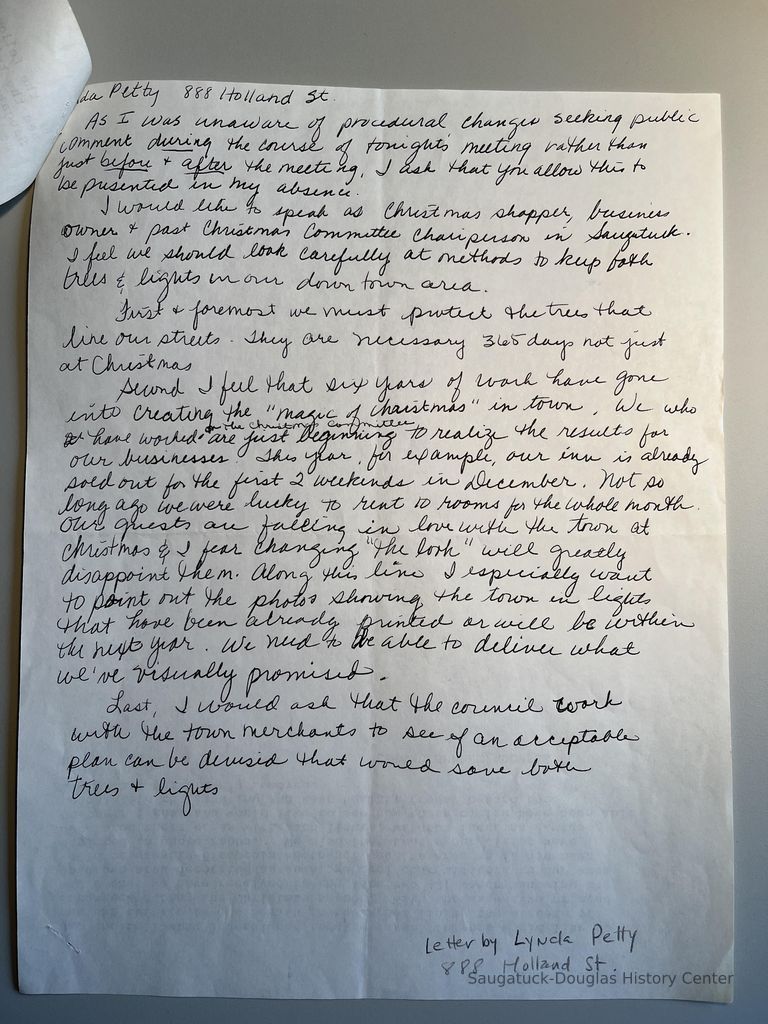 da Petty 888 Holland St.
As I was unaware of procedural changes seeking public
comment during the course of tonights meeting rather than
just before + after the meeting, I ask that you allow this to
be presented in my absence.
I would like to speak as Christmas shopper, business
owner + past Christmas Committee Chairperson in Saugatuck.
I feel we should look carefully at methods to keep both
trees & lights in our down town area.
First + foremost we must protect the trees that
line our streets. They are necessary 365 days not just
at Christmas
Second I feel that six years of work have gone
into creating the "magic of Christmas" in town. We who
on the Christmas Committee
have worked are just beginning to realize the results for
our businesses. This year, for example, our inn is already
sold out for the first 2 weekends in December. Not so
long ago we were lucky to rent 10 rooms for the whole month.
Our guests are falling in love with the town at
Christmas & I fear changing "the look" will greatly
disappoint them. Along this line I especially want
to point out the photos showing the town in lights
that have been already printed or will be within
the next year. We need to be able to deliver what
we've visually promised.
Last, I would ask that the council work
with the town merchants to see if an acceptable
plan can be devised that would save both
trees + lights
Letter by Lynda Petty
888 Holland St.
Saugatuck-Douglas History Center